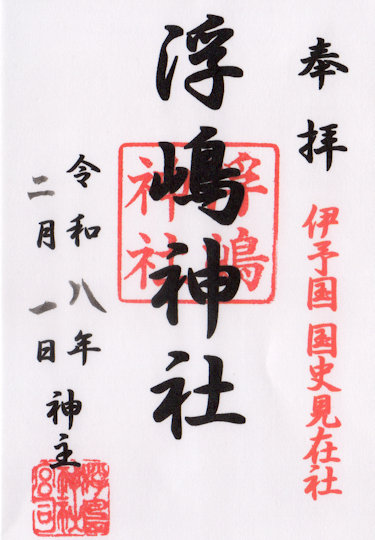 奉拝
伊予国 国史見在社
浮嶋神社
浮嶋神社
令和八年
二月一日
神主
浮島神社宮司